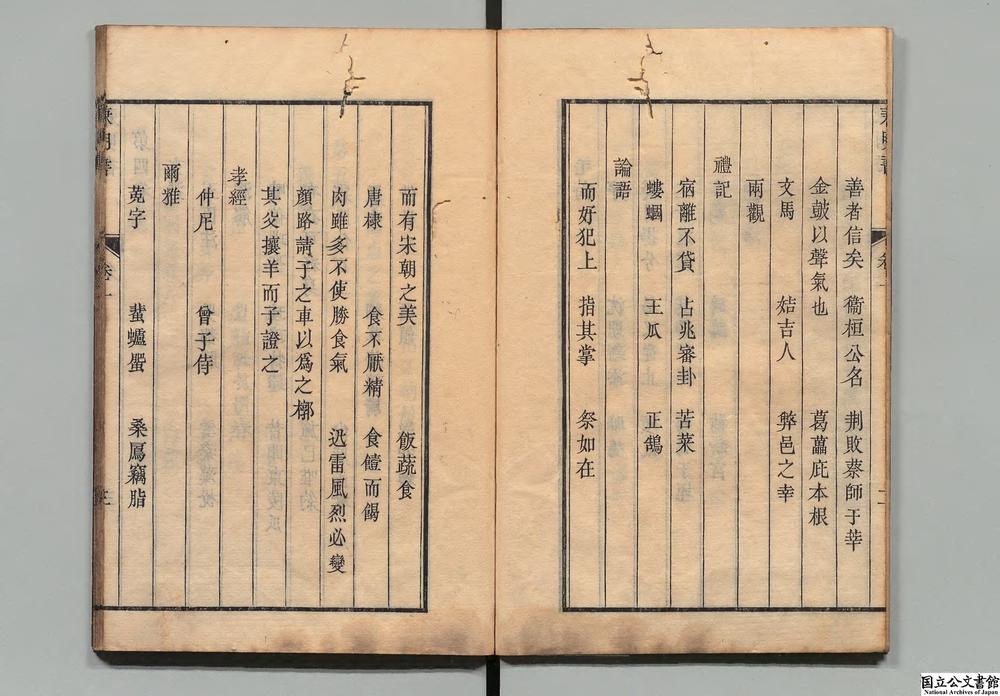 善者信矣 衞桓公名 荆敗蔡師于莘
金鼓以聲氣也 葛藟庇本根
文馬 姞吉人 弊邑之幸
兩觀
禮記
宿離不貸 占兆審卦 苦菜
螻蟈 王瓜 正鵠
論語
而好犯上 指其掌 祭如在
而有宋朝之美 飯蔬食
唐棣 食不厭精 食饐而餲
肉雖多不使勝食氣 迅雷風烈必變
顏路請子之車以爲之槨
其父攘羊而子證之
孝經
仲尼 曾子侍
爾雅
莵字 蜚蠦蜰 桑鳸竊脂
兼明書 卷一
国立公文書館
National Archives of Japan